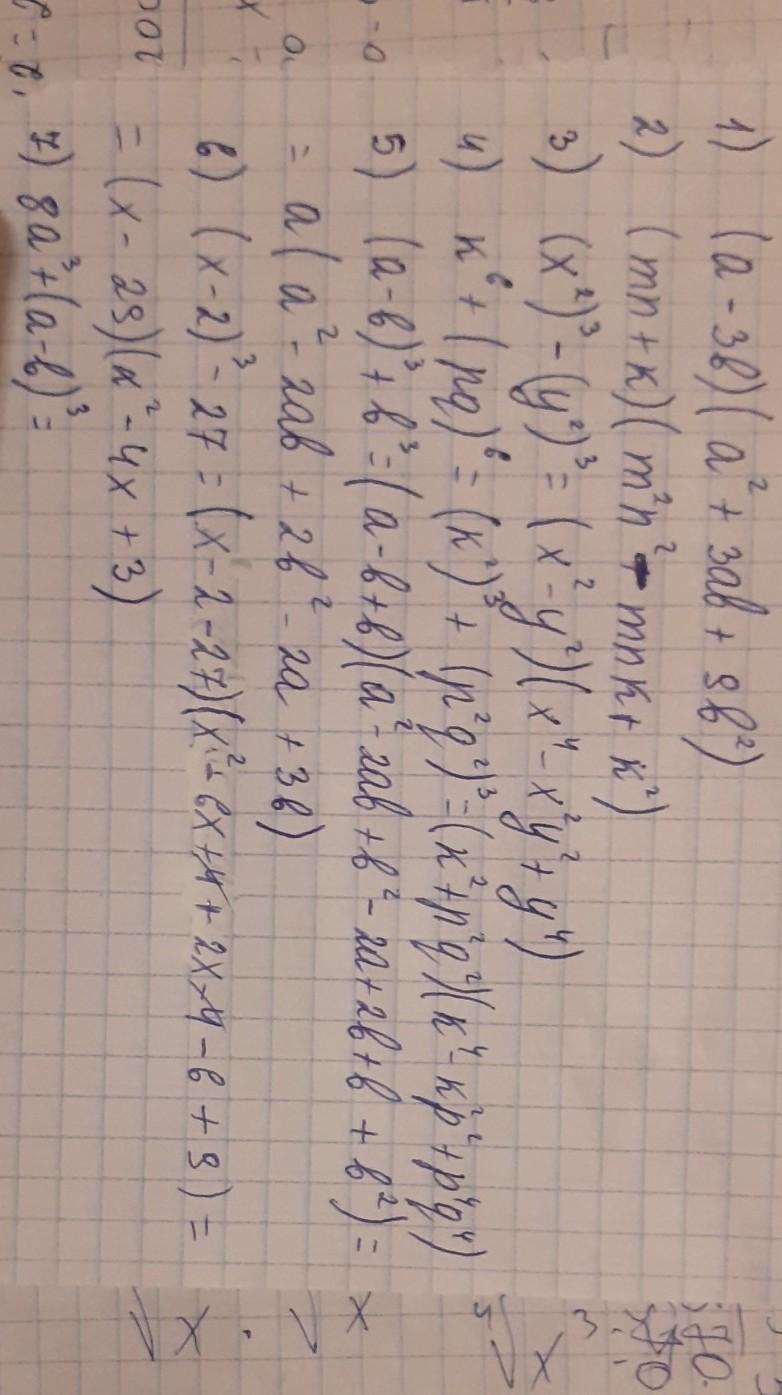 1) (a - 3b)(a² + 3ab + 9b²)
2) (mn + k)(m²n² - mnk + k²)
3) (x²)³ - (y²)³ = (x² - y²)(x⁴ - x²y² + y⁴)
4) k⁶ + (pq)⁶ = (k²)³ + (p²q²)³ = (k² + p²q²)(k⁴ - k²p² + p⁴q⁴)
5) (a - b)³ + b³ = (a - b + b)(a² - 2ab + b² - 2a + 2b + b + b²) =
= a(a² - 2ab + 2b² - 2a + 3b)
6) (x - 2)³ - 27 = (x - 2 - 27)(x² - 6x + 4 + 2x + 4 - 6 + 9) =
= (x - 29)(x² - 4x + 3)
7) 8a³ + (a - b)³ =